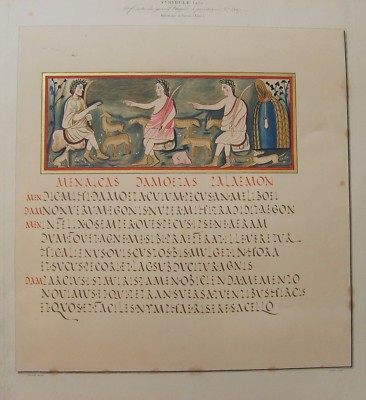 MENALCAS DAMOETAS PALAEMON
MEN DIC MIHI DAMOETA CVIVM PECVS AN MELIBOEI
DAM NON VERVM AEGONIS NVPER MIHI TRADIDIT AEGON
MEN INFELIX O SEMPER OVES PECVS IPSE NEAERAM
DVM FOVET AC NE ME SIBI PRAEFERAT ILLA VERETVR
HIC ALIENVS OVIS CVSTOS BIS MVLGET IN HORA
ET SVCVS PECORI ET LAC SVBDVCITVR AGNIS
DAM PARCIVS ISTA VIRIS TAMEN OBICIENDA MEMENTO
NOVIMVS ET QVI TE TRANSVERSA TVENTIBVS HIRCIS
ET QVO SED FACILES NYMPHAE RISERE SACELLO